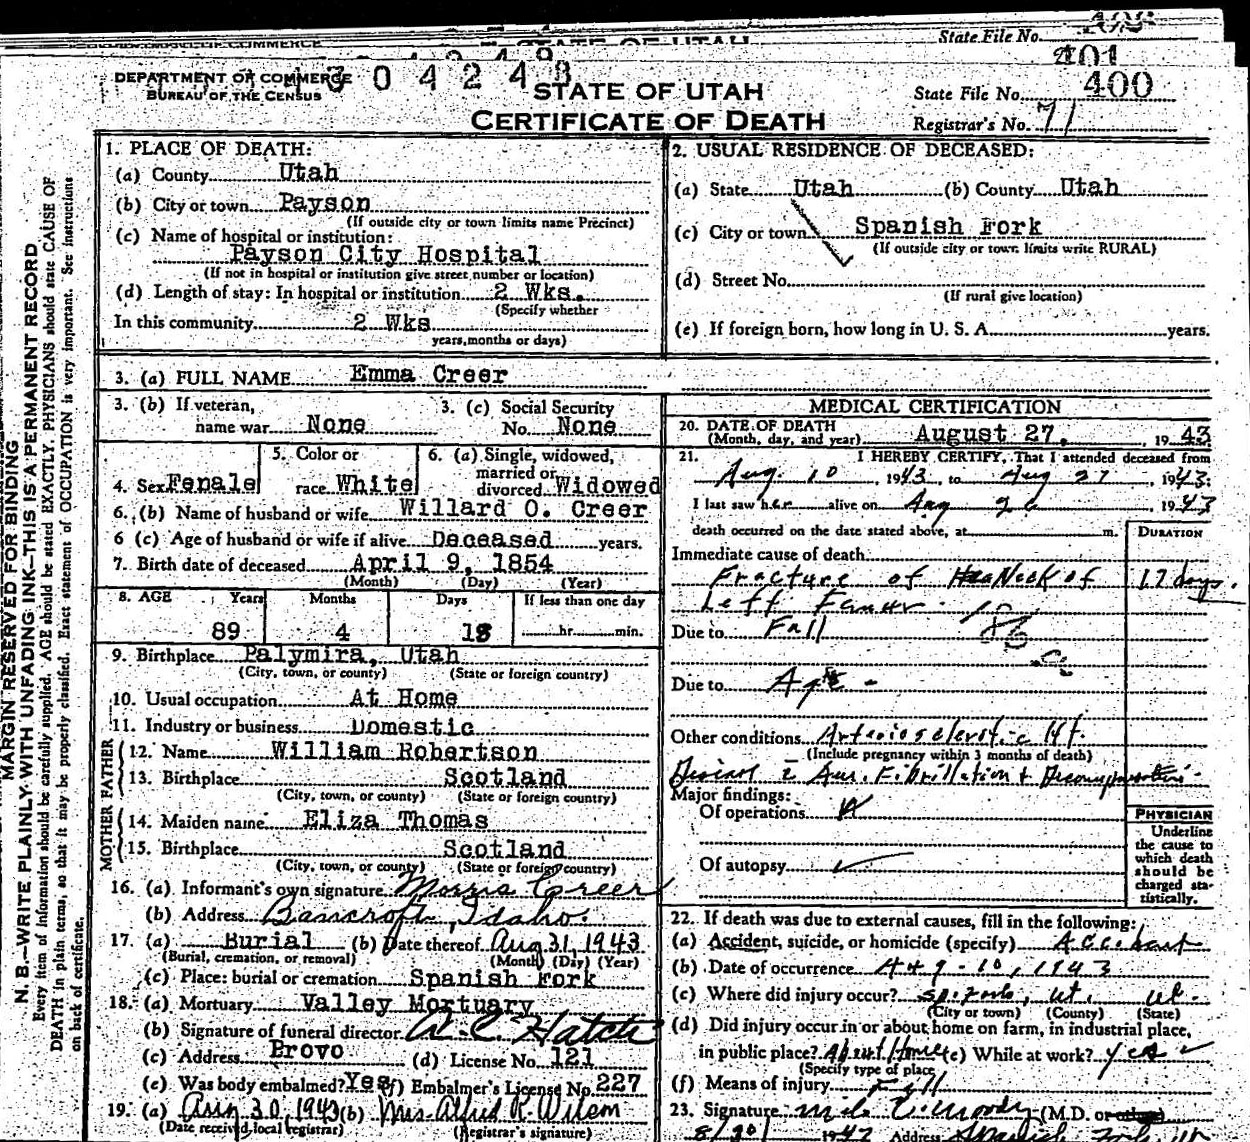 State File No.
401
DEPARTMENT OF COMMERCE
BUREAU OF THE CENSUS
304248
STATE OF UTAH
CERTIFICATE OF DEATH
State File No. 400
Registrar's No. 71
MARGIN RESERVED FOR BINDING
N. B.—WRITE PLAINLY WITH UNFADING INK—THIS IS A PERMANENT RECORD
Every item of information should be carefully supplied. AGE should be stated EXACTLY. PHYSICIANS should state CAUSE OF
DEATH in plain terms, so that it may be properly classified. Exact statement of OCCUPATION is very important. See instructions
on back of certificate.
1. PLACE OF DEATH:
(a) County Utah
(b) City or town Payson
(If outside city or town limits name Precinct)
(c) Name of hospital or institution:
Payson City Hospital
(If not in hospital or institution give street number or location)
(d) Length of stay: In hospital or institution 2 Wks.
(Specify whether
In this community 2 Wks
years, months or days)
2. USUAL RESIDENCE OF DECEASED:
(a) State Utah (b) County Utah
(c) City or town Spanish Fork
(If outside city or town limits write RURAL)
(d) Street No.
(If rural give location)
(e) If foreign born, how long in U. S. A. years.
3. (a) FULL NAME Emma Creer
3. (b) If veteran,
name war None
3. (c) Social Security
No. None
4. Sex Female
5. Color or
race White
6. (a) Single, widowed,
married or
divorced Widowed
6. (b) Name of husband or wife Willard O. Creer
6 (c) Age of husband or wife if alive Deceased years.
7. Birth date of deceased April 9, 1854
(Month) (Day) (Year)
8. AGE Years Months Days If less than one day
89 4 18 hr. min.
9. Birthplace Palymira, Utah
(City, town, or county) (State or foreign country)
10. Usual occupation At Home
11. Industry or business Domestic
FATHER
12. Name William Robertson
13. Birthplace Scotland
(City, town, or county) (State or foreign country)
MOTHER
14. Maiden name Eliza Thomas
15. Birthplace Scotland
(City, town, or county) (State or foreign country)
16. (a) Informant's own signature Morris Creer
(b) Address Bancroft, Idaho.
17. (a) Burial (b) Date thereof Aug 31, 1943
(Burial, cremation, or removal) (Month) (Day) (Year)
(c) Place: burial or cremation Spanish Fork
18. (a) Mortuary Valley Mortuary
(b) Signature of funeral director A. C. Hatch
(c) Address Provo (d) License No. 121
(e) Was body embalmed? Yes (f) Embalmer's License No. 227
19. (a) Aug 30, 1943 (b) Mrs. Alfred R. Wilson
(Date received local registrar) (Registrar's signature)
MEDICAL CERTIFICATION
20. DATE OF DEATH
(Month, day, and year) August 27, 1943
21. I HEREBY CERTIFY, That I attended deceased from
Aug. 10, 1943, to Aug 27, 1943;
I last saw her alive on Aug 26, 1943
death occurred on the date stated above, at m.
DURATION
Immediate cause of death
Fracture of Neck of 17 days.
Left Femur.
Due to Fall
Due to Age -
Other conditions Arteriosclerotic Ht.
(Include pregnancy within 3 months of death)
Disease c Aur. Fibrillation + Decompensation.
Major findings:
Of operations
Of autopsy
PHYSICIAN
Underline
the cause to
which death
should be
charged sta-
tistically.
22. If death was due to external causes, fill in the following:
(a) Accident, suicide, or homicide (specify) Accident
(b) Date of occurrence Aug - 10, 1943
(c) Where did injury occur? Sp. Fork, Ut. Ut.
(City or town) (County) (State)
(d) Did injury occur in or about home on farm, in industrial place,
in public place? About Home (e) While at work? yes
(Specify type of place
(f) Means of injury Fall
23. Signature Moody (M.D. or other)
8/30 1943 Address Spanish Fork Ut